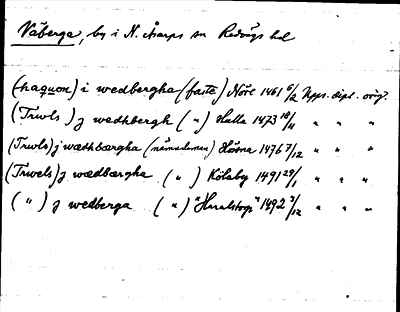 Väberga, by i N. Åsarps sn Redvägs hd
(haquon) i wedbergha (faste) Nöre 1461 6/2 Upps. dipl. orig.
(Truls) j wedhbergh ( " ) Halla 1473 18/11 " " "
(Truls) j wædhbærgha (nämndeman) Hösna 1476 7/12 " " "
(Truels) j wædbærgha ( " ) Kölaby 1491 29/1 " " "
( " ) j wedberga ( " ) 1492 3/12 " " "